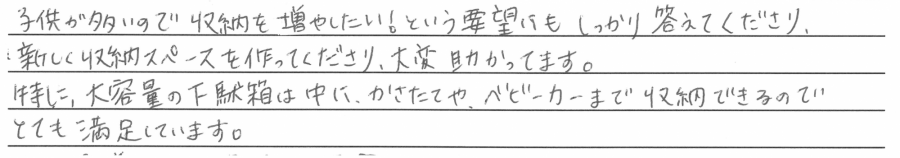 子供が多いので収納を増やしたい！という要望にもしっかり答えてくださり、
新しく収納スペースを作ってくださり、大変助かってます。
特に、大容量の下駄箱は中に、かさたてや、ベビーカーまで収納できるので
とても満足しています。